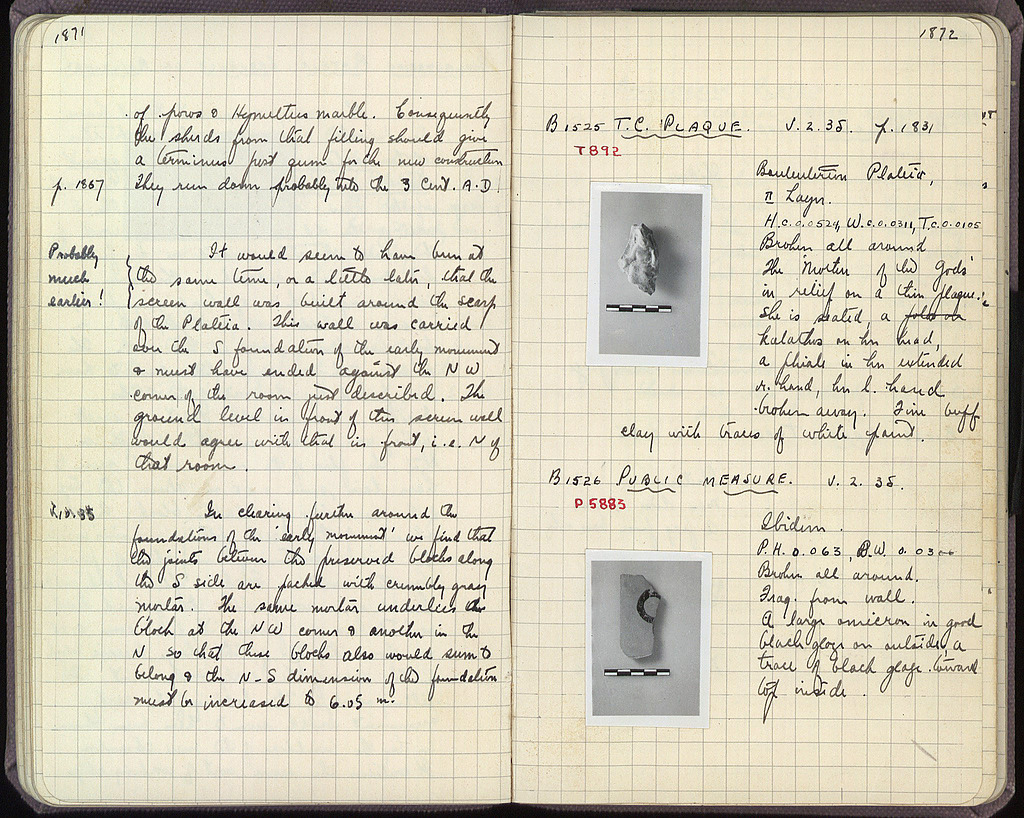 1871
of poros & Hymettus marble. Consequently
the sherds from that filling should give
a terminus post quem for the new construction
p. 1867
They run down probably into the 3 Cent. A.D.
Probably
much
earlier!
It would seem to have been at
the same time, or a little later, that the
screen wall was built around the scarp
of the Plateia. This wall was carried
over the S foundation of the early monument
& must have ended against the NW
corner of the room just described. The
ground level in front of this screen wall
would agree with that in front, i.e. N of
that room.
In clearing further around the
foundations of the 'early monument' we find that
the joints between the preserved blocks along
the S side are packed with crumbly gray
mortar. The same mortar underlies the
block at the NW corner & another in the
N so that these blocks also would seem to
belong & the N-S dimension of the foundation
must be increased to 6.05 m.
1872
B 1525 T.C. PLAQUE. V.2.35. p. 1831
T 892
Bouleuterion Plateia,
π Layer.
H.c.0.0524, W.c.0.0311, T.c.0.0105
Broken all around
The 'Mother of the Gods'
in relief on a thin plaque.
She is seated, a
kalathos on her head,
a phiale in her extended
r. hand, her l. hand
broken away. Fine buff
clay with traces of white paint.
B 1526 PUBLIC MEASURE. V.2.35.
P 5883
Ibidem.
P.H. 0.063, P.W. 0.03
Broken all around.
Frag. from wall.
A large omicron in good
black glaze on outside, a
trace of black glaze toward
top inside.